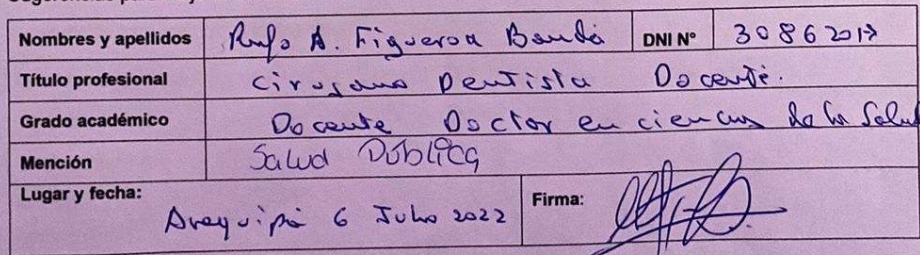 Nombres y apellidos Rufo A. Figueroa Banda DNI N° 30862017
Título profesional Cirujano Dentista Docente.
Grado académico Docente Doctor en ciencias de la Salud
Mención Salud Publica
Lugar y fecha: Arequipa 6 Julio 2022 Firma: